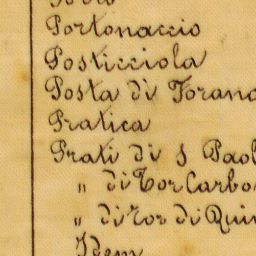 Portonaccio
Posticciola
Posta di Torano
Pratica
Prati di S Paol
" di Tor Carbo
" di Tor di Quin
Idem